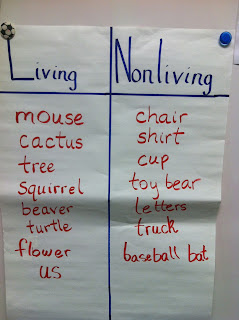 Living Nonliving
mouse chair
cactus shirt
tree cup
squirrel toy bear
beaver letters
turtle truck
flower baseball bat
us